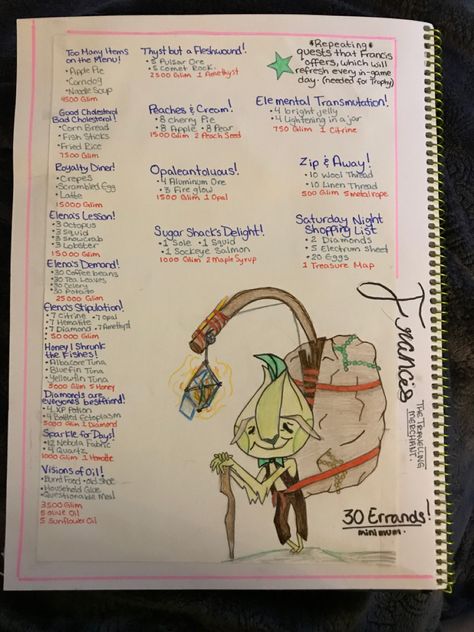 Too Many Items
on the Menu!
• Apple Pie
• Corndog
• Noodle Soup
4500 Glim
Good Cholesterol
Bad Cholesterol!
• Corn Bread
• Fish Sticks
• Fried Rice
7500 Glim
Royalty Diner!
• Crepes
• Scrambled Egg
• Latte
15000 Glim
Elena's Lesson!
• 3 Octopus
• 3 Squid
• 3 Snowcrab
• 3 Lobster
15000 Glim
Elena's Demand!
• 30 Coffee beans
• 30 Tea Leaves
• 30 Celery
• 30 Potato
25000 Glim
Elena's Stipulation!
• 7 Citrine • 7 Opal
• 7 Hematite
• 7 Diamond • 7 Amethyst
50000 Glim
Honey I Shrunk
the Fishes!
• Albacore Tuna
• Bluefin Tuna
• Yellowfin Tuna
5000 Glim 5 Honey
Diamonds are
everyone's bestfriend!
• 4 XP Potion
• 4 Bottled Ectoplasm
5000 Glim 1 Diamond
Sparkle for Days!
• 12 Nebula Fabric
• 4 Quartz
1000 Glim 1 Hematite
Visions of Oil!
• Burnt Food • Old Shoe
• Household Glue
• Questionable Meal
3500 Glim
5 Olive Oil
5 Sunflower Oil
Thyst but a Fleshwound!
• 5 Pulsar Ore
• 5 Comet Rock
2500 Glim 1 Amethyst
Peaches & Cream!
• 8 cherry Pie
• 8 Apple • 8 Pear
1500 Glim 2 Peach Seed
Opaleantoluous!
• 4 Aluminum Ore
• 3 Fire glow
1500 Glim 1 Opal
Sugar Shack's Delight!
• 1 Sole • 1 Squid
• 1 Sockeye Salmon
1000 Glim 2 Maple Syrup
*Repeating*
quests that Francis
offers, which will
refresh every in-game
day. (needed for Trophy)
Elemental Transmutation!
• 4 bright jelly
• 4 Lightening in a jar
750 Glim 1 Citrine
Zip & Away!
• 10 Wool Thread
• 10 Linen Thread
500 Glim 5 metal rope
Saturday Night
Shopping List
• 2 Diamonds
• 5 Electrum Sheet
• 20 Eggs
1 Treasure Map
Francis
THE TRAVELLING
MERCHANT
30 Errands!
minimum.